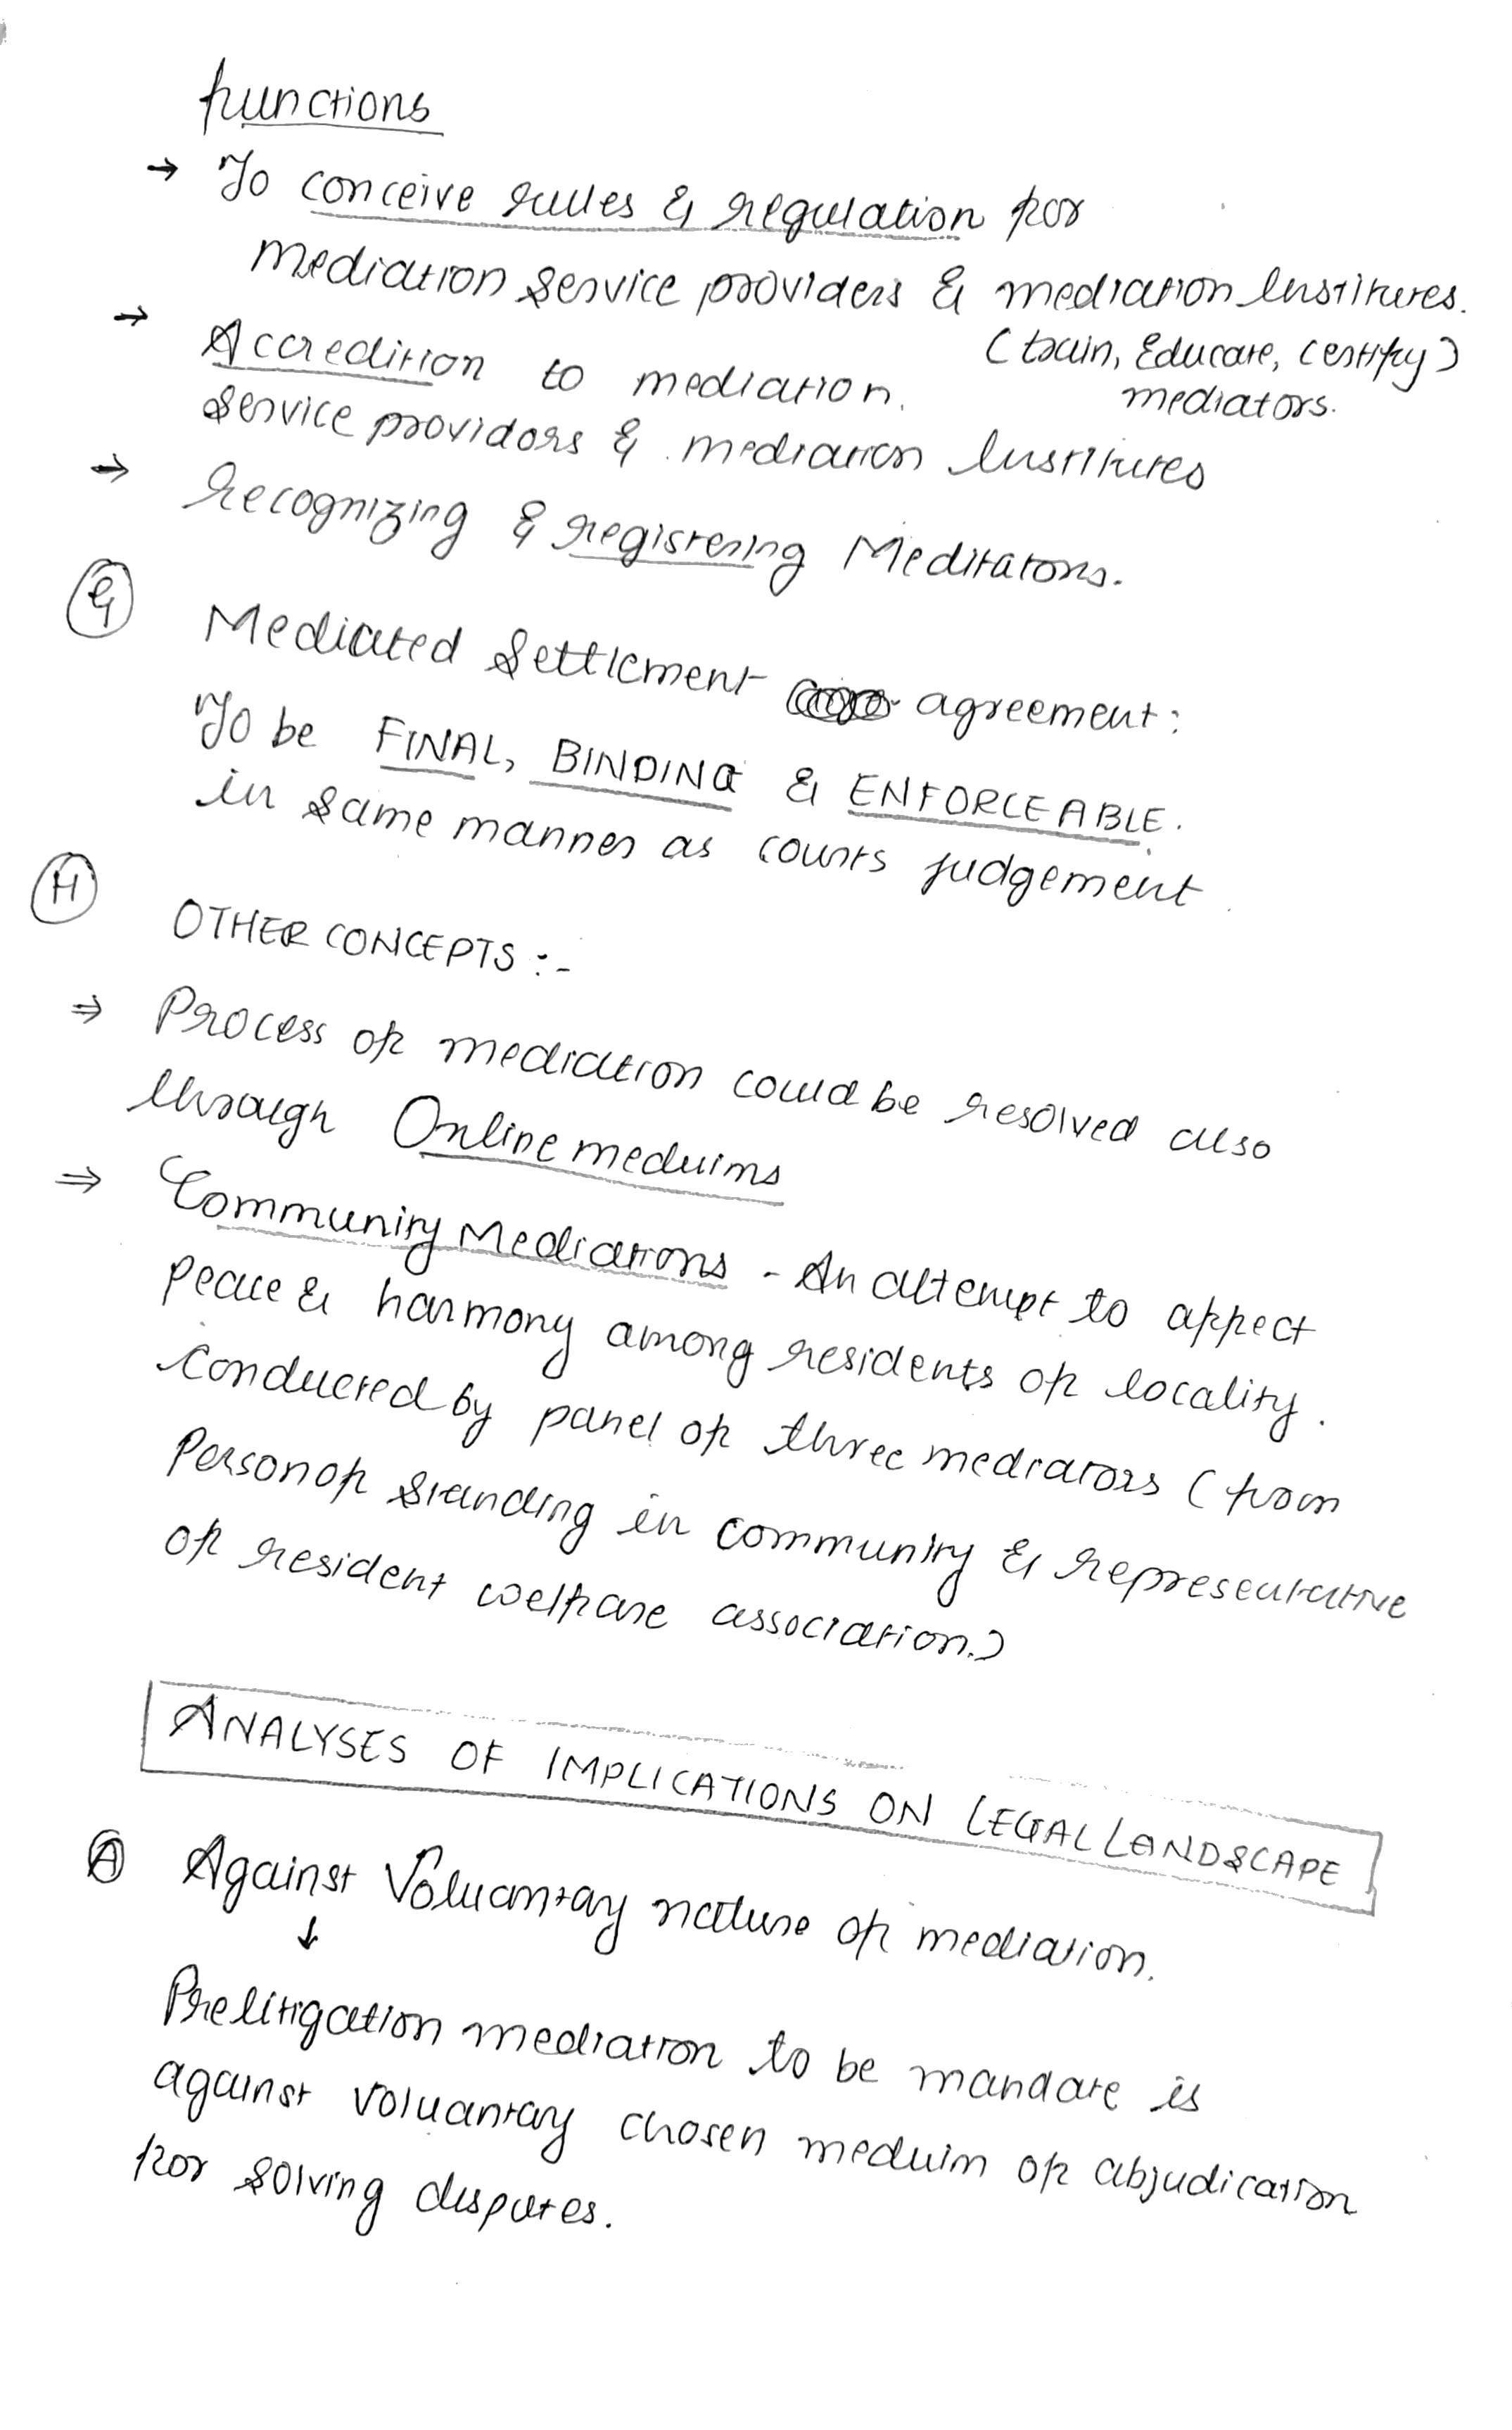 functions
→ To conceive rules & regulation for
mediation service providers & mediation Institutes.
(train, Educate, Certify)
mediators.
→ Accredition to mediation.
service providors & mediation Institutes
→ Recognizing & registering Meditators.
G Mediated Settlement agreement:
To be FINAL, BINDING & ENFORCEABLE.
in same manner as courts judgement.
H OTHER CONCEPTS :-
⇒ Process of mediation could be resolved also
through Online meduims
⇒ Community Mediations - An attempt to affect
peace & harmony among residents of locality.
Conducted by panel of three mediators (from
Person of standing in community & representative
of resident welfare association.)
ANALYSES OF IMPLICATIONS ON LEGAL LANDSCAPE
A Against Voluantray nature of mediation.
↓
Prelitigation mediation to be mandate is
against voluantray chosen meduim of abjudication
for solving disputes.